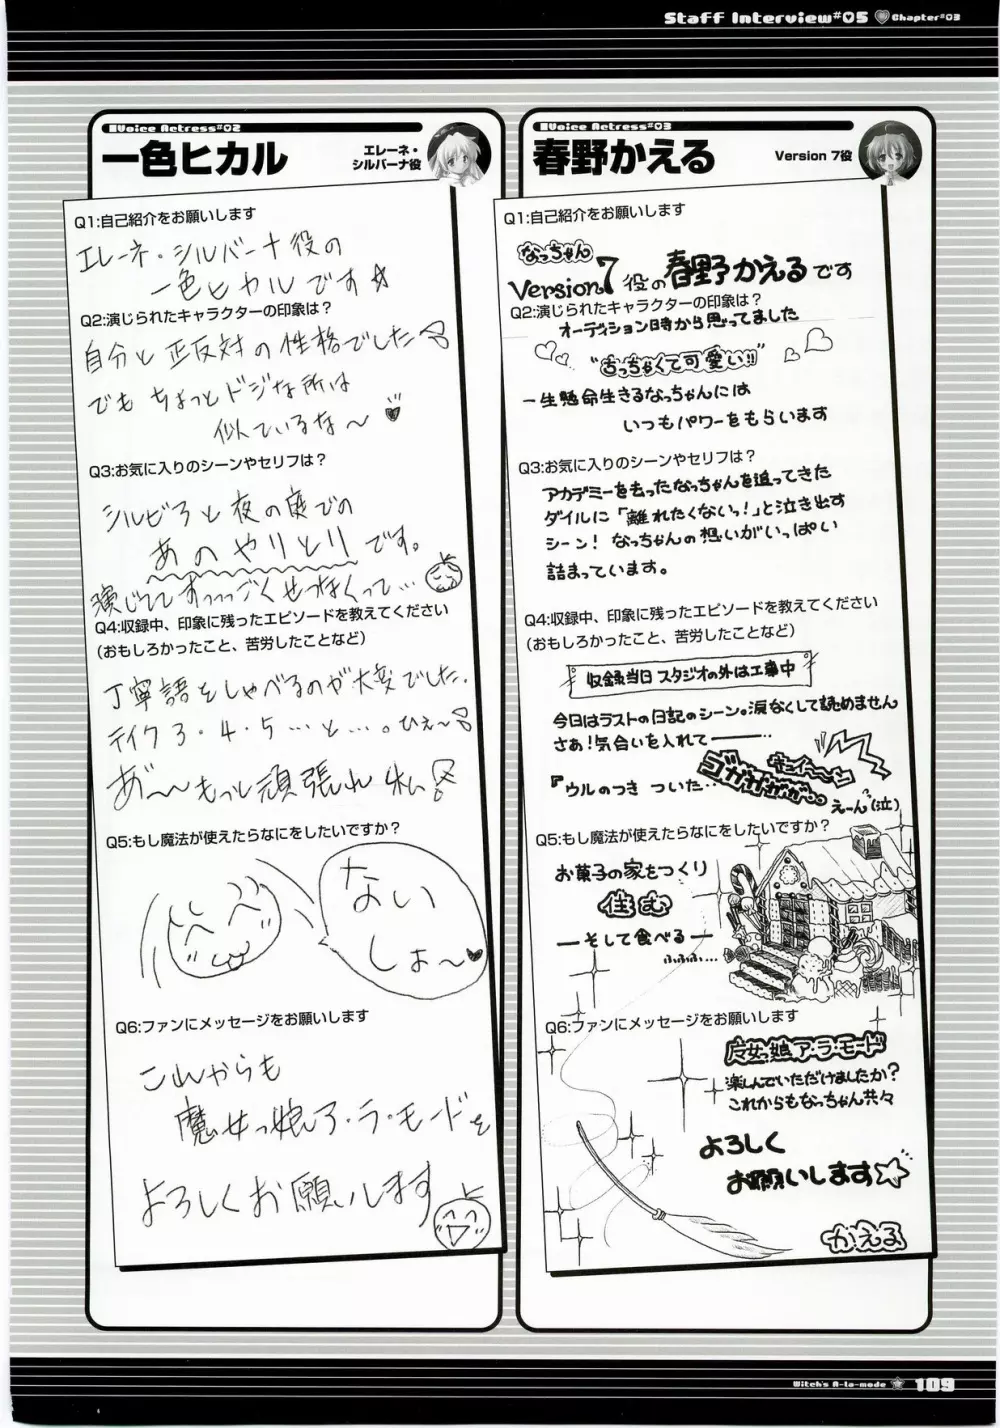 Staff Interview#05 Chapter#03
Voice Actress#02
一色ヒカル
エレーネ・
シルバーナ役
Q1:自己紹介をお願いします
エレーネ・シルバーナ役の
一色ヒカルです☆
Q2:演じられたキャラクターの印象は?
自分と正反対の性格でした
でも ちょっとドジな所は
似ているな〜♥
Q3:お気に入りのシーンやセリフは?
シルビアと夜の庭での
あのやりとりです。
演じててすっっっごくせつなくって…
Q4:収録中、印象に残ったエピソードを教えてください
(おもしろかったこと、苦労したことなど)
丁寧語をしゃべるのが大変でした.
テイク3・4・5…と…。ひぇ〜
あ゛〜〜もっと頑張れ 私
Q5:もし魔法が使えたらなにをしたいですか?
ない
しょ〜♥
Q6:ファンにメッセージをお願いします
これからも
魔女っ娘ア・ラ・モードを
よろしくお願いします
Voice Actress#03
春野かえる
Version 7役
Q1:自己紹介をお願いします
なっちゃん
Version7役の春野かえるです
Q2:演じられたキャラクターの印象は?
オーディション時から思ってました
"ちっちゃくて可愛い!!"
一生懸命生きるなっちゃんには
いつもパワーをもらいます
Q3:お気に入りのシーンやセリフは?
アカデミーを去ったなっちゃんを追ってきた
ダイルに「離れたくないっ!」と泣き出す
シーン! なっちゃんの想いがいっぱい
詰まっています。
Q4:収録中、印象に残ったエピソードを教えてください
(おもしろかったこと、苦労したことなど)
収録当日 スタジオの外は工事中
今日はラストの日記のシーン。涙なくして読めません
さぁ!気合いを入れて———‥
『ウルのつき ついた‥
ゴガガガガ‥
えーん?(泣)
Q5:もし魔法が使えたらなにをしたいですか?
お菓子の家をつくり
住む
—そして食べる—
ふふふ…
Q6:ファンにメッセージをお願いします
魔女っ娘ア・ラ・モード
楽しんでいただけましたか?
これからもなっちゃん共々
よろしく
お願いします☆
かえる
Witch's A-la-mode 109